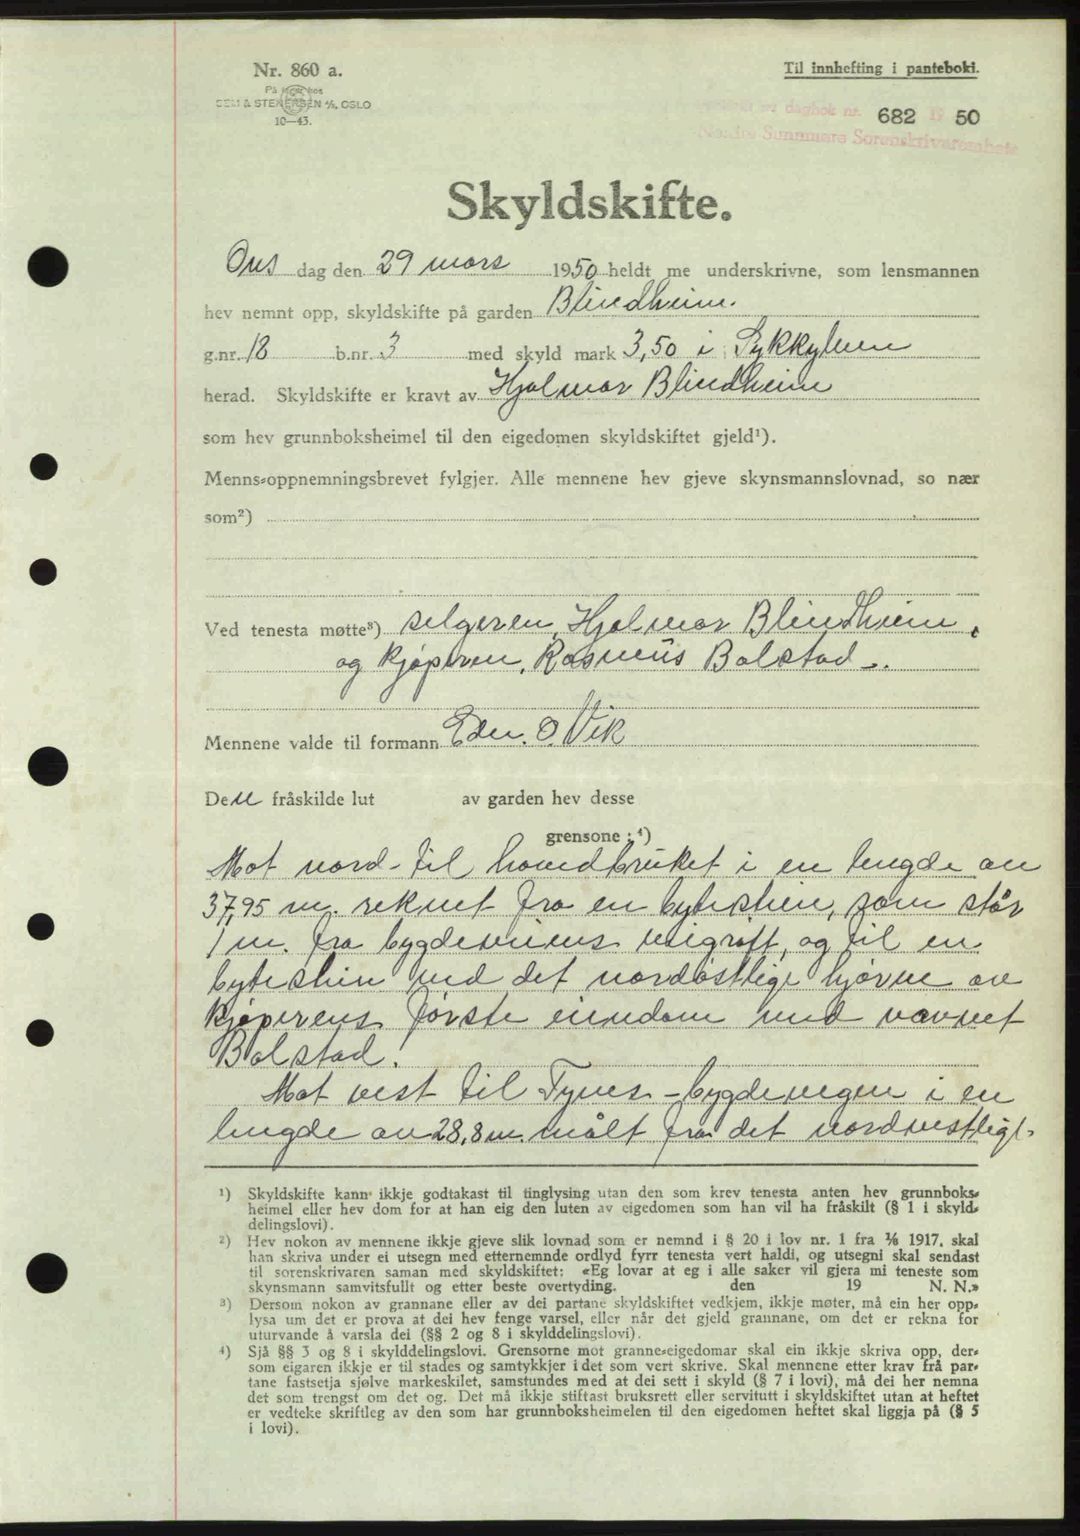 Nr. 860 a.
Til innhefting i panteboki.
På lager hos
SEM & STENERSEN A/S, OSLO
10—43.
dagbok nr. 682 19 50
Nordre Sunnmøre Sorenskrivarembete
Skyldskifte.
Ons dag den 29 mars 1950 heldt me underskrivne, som lensmannen
hev nemnt opp, skyldskifte på garden Blindheim.
g.nr. 18 b.nr. 3 med skyld mark 3,50 i Sykkylven
herad. Skyldskifte er kravt av Hjalmar Blindheim
som hev grunnboksheimel til den eigedomen skyldskiftet gjeld¹).
Menns-oppnemningsbrevet fylgjer. Alle mennene hev gjeve skynsmannslovnad, so nær
som²)
Ved tenesta møtte³) selgeren, Hjalmar Blindheim,
og kjøperen, Rasmus Bolstad.
Mennene valde til formann Edv. O. Vik
Den fråskilde lut av garden hev desse
grensone: ⁴)
Mot nord til hovedbruket i en lengde av
37,95 m. reknet fra en bytestein, som står
1 m. fra bygdeveiens veigrøft, og til en
bytestein ved det nordøstlige hjørne av
kjøperens første eiendom med navnet
Bolstad.
Mot vest til Tynes-bygdevegen i en
lengde av 28,8 m. målt fra det nordvestlige
¹) Skyldskifte kann ikkje godtakast til tinglysing utan den som krev tenesta anten hev grunnboks-
heimel eller hev dom for at han eig den luten av eigedomen som han vil ha fråskilt (§ 1 i skyld-
delingslovi).
²) Hev nokon av mennene ikkje gjeve slik lovnad som er nemnd i § 20 i lov nr. 1 fra 1/6 1917, skal
han skriva under ei utsegn med etternemnde ordlyd fyrr tenesta vert haldi, og utsegni skal sendast
til sorenskrivaren saman med skyldskiftet: «Eg lovar at eg i alle saker vil gjera mi teneste som
skynsmann samvitsfullt og etter beste overtyding. den 19 N. N.»
³) Dersom nokon av grannane eller av dei partane skyldskiftet vedkjem, ikkje møter, må ein her opp-
lysa um det er prova at dei hev fenge varsel, eller når det gjeld grannane, om det er rekna for
uturvande å varsla dei (§§ 2 og 8 i skylddelingslovi).
⁴) Sjå §§ 3 og 8 i skylddelingslovi. Grensorne mot granne-eigedomar skal ein ikkje skriva opp, der-
som eigaren ikkje er til stades og samtykkjer i det som vert skrive. Skal mennene etter krav frå par-
tane fastsetja sjølve markeskilet, samstundes med at dei sett i skyld (§ 7 i lovi), må dei her nemna
det som trengst om det og. Det må ikkje stiftast bruksrett eller servitutt i skyldskiftet utan at heftet
er vedteke skriftleg av den som har grunnboksheimelen til den eigedomen heftet skal liggja på (§ 5
i lovi).